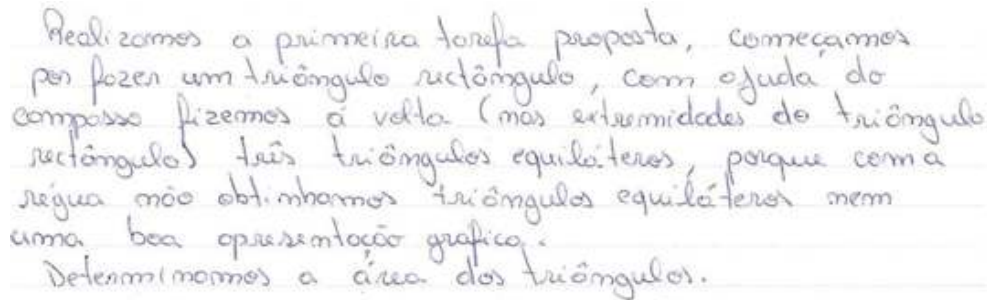 Realizamos a primeira tarefa proposta, começamos
por fazer um triângulo rectângulo, com ajuda do
compasso fizemos á volta (nas extremidades do triângulo
rectângulo) três triângulos equiláteros, porque com a
régua não obtinhamos triângulos equiláteros nem
uma boa apresentação gráfica.
Determinamos a área dos triângulos.